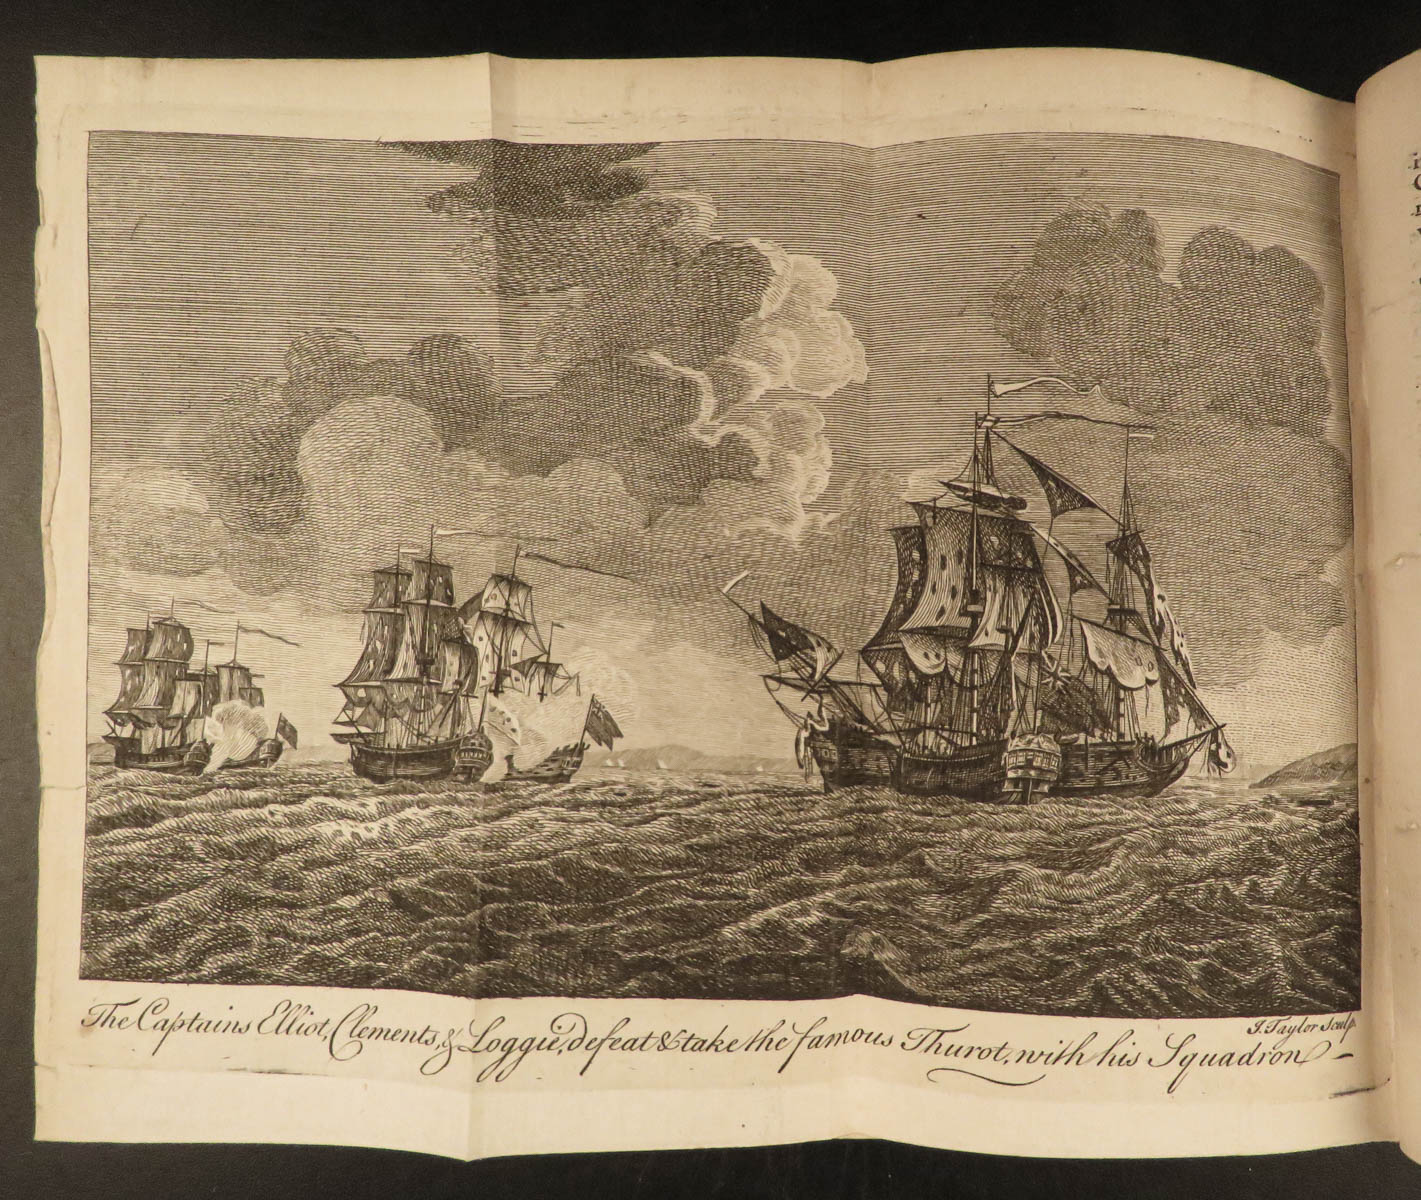 J. Taylor Sculp
The Captains Elliot, Clements, & Loggie, defeat & take the famous Thurot, with his Squadron